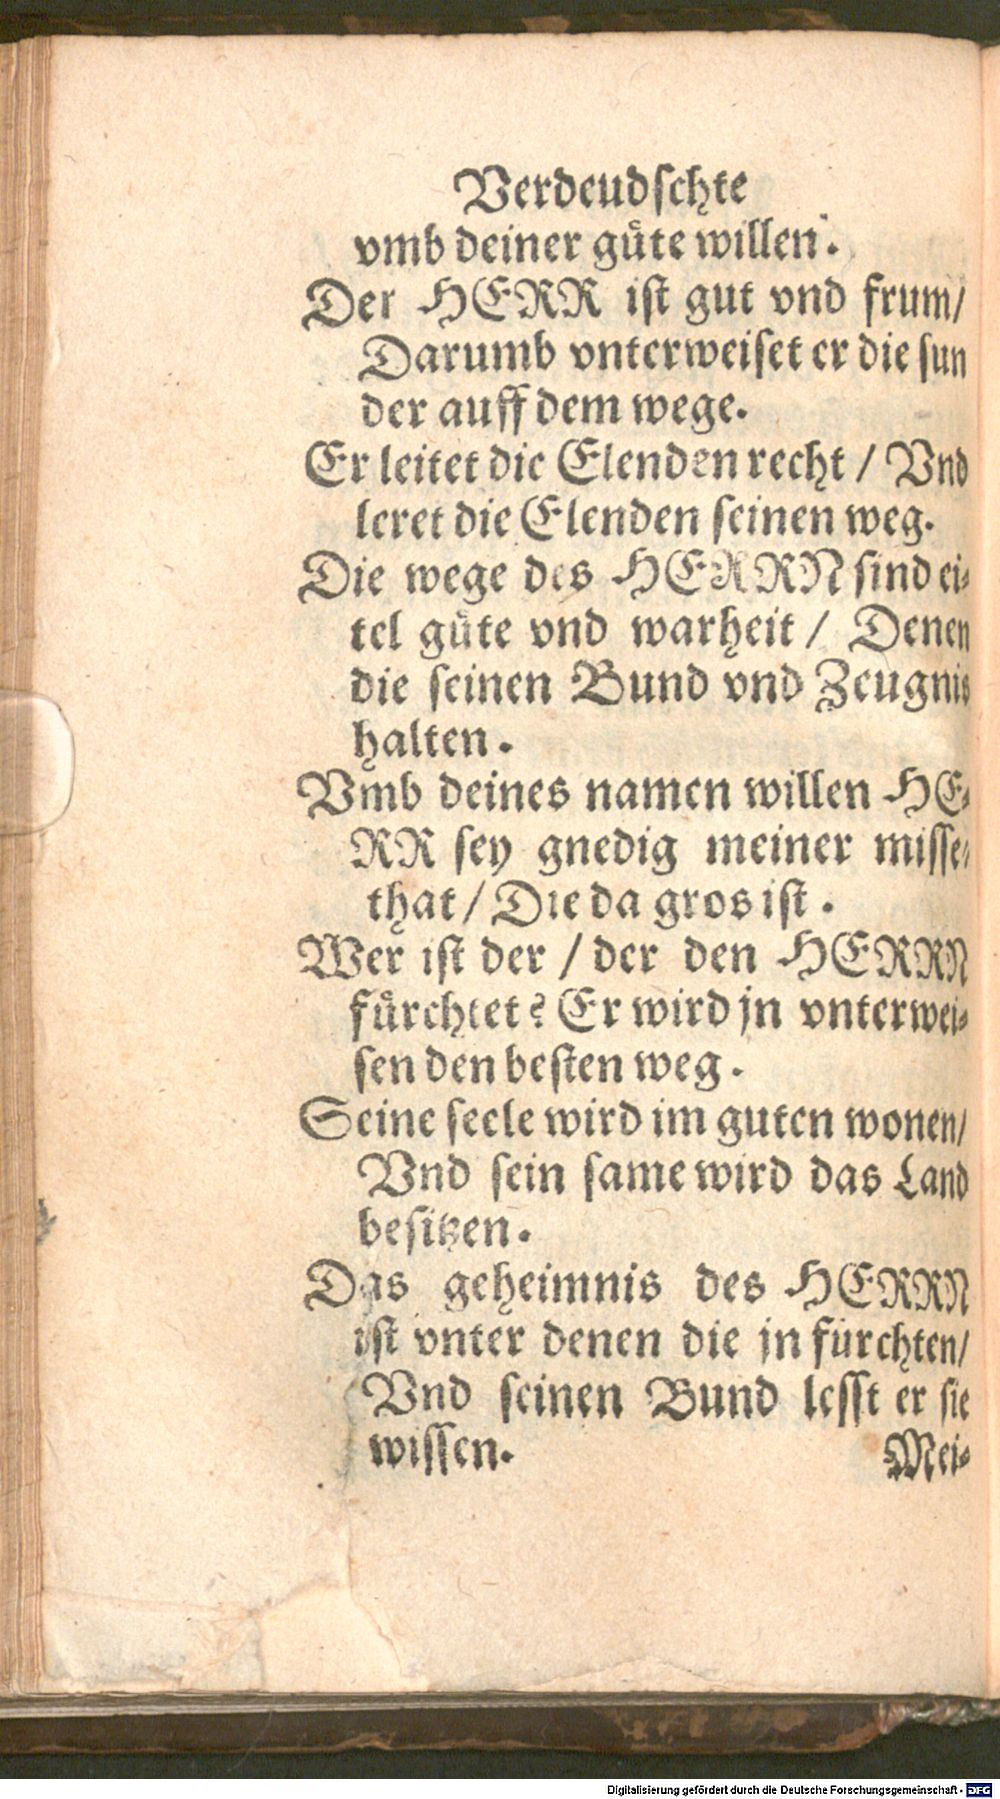 Verdeudschte
vmb deiner güte willen.
Der HERR ist gut vnd frum/
Darumb vnterweiset er die sun
der auff dem wege.
Er leitet die Elenden recht / Vnd
leret die Elenden seinen weg.
Die wege des HERRN sind ei-
tel güte vnd warheit / Denen
die seinen Bund vnd Zeugnis
halten.
Vmb deines namen willen HE-
RR sey gnedig meiner misse-
that / Die da gros ist.
Wer ist der / der den HERRN
fürchtet? Er wird jn vnterwei-
sen den besten weg.
Seine seele wird im guten wonen/
Vnd sein same wird das Land
besitzen.
Das geheimnis des HERRN
ist vnter denen die jn fürchten/
Vnd seinen Bund lesst er sie
wissen.
Mei-
Digitalisierung gefördert durch die Deutsche Forschungsgemeinschaft - DFG